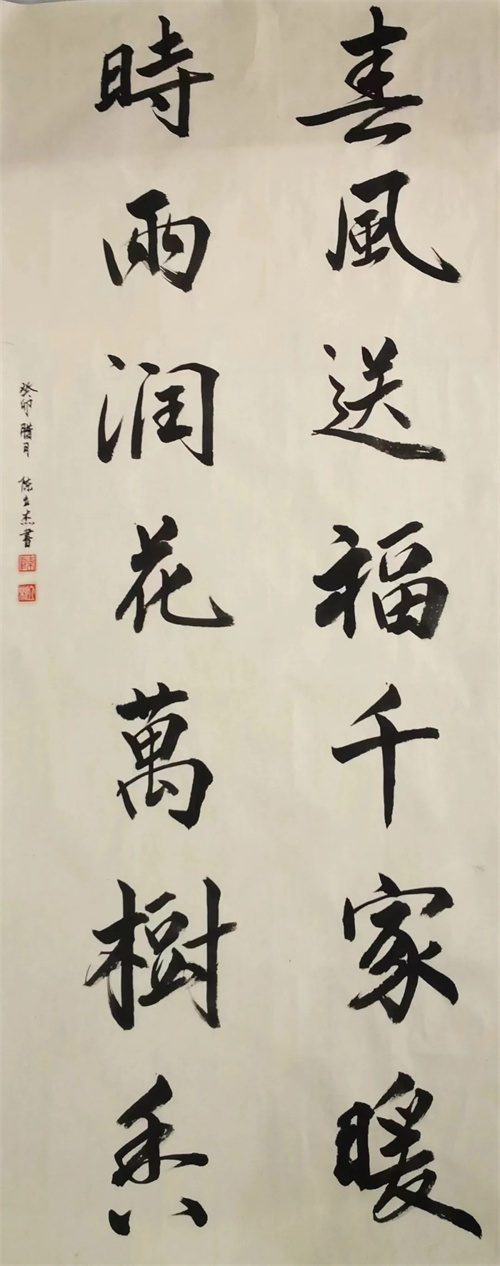 春風送福千家暖
時雨润花萬樹香
癸卯腊月 陈立杰書